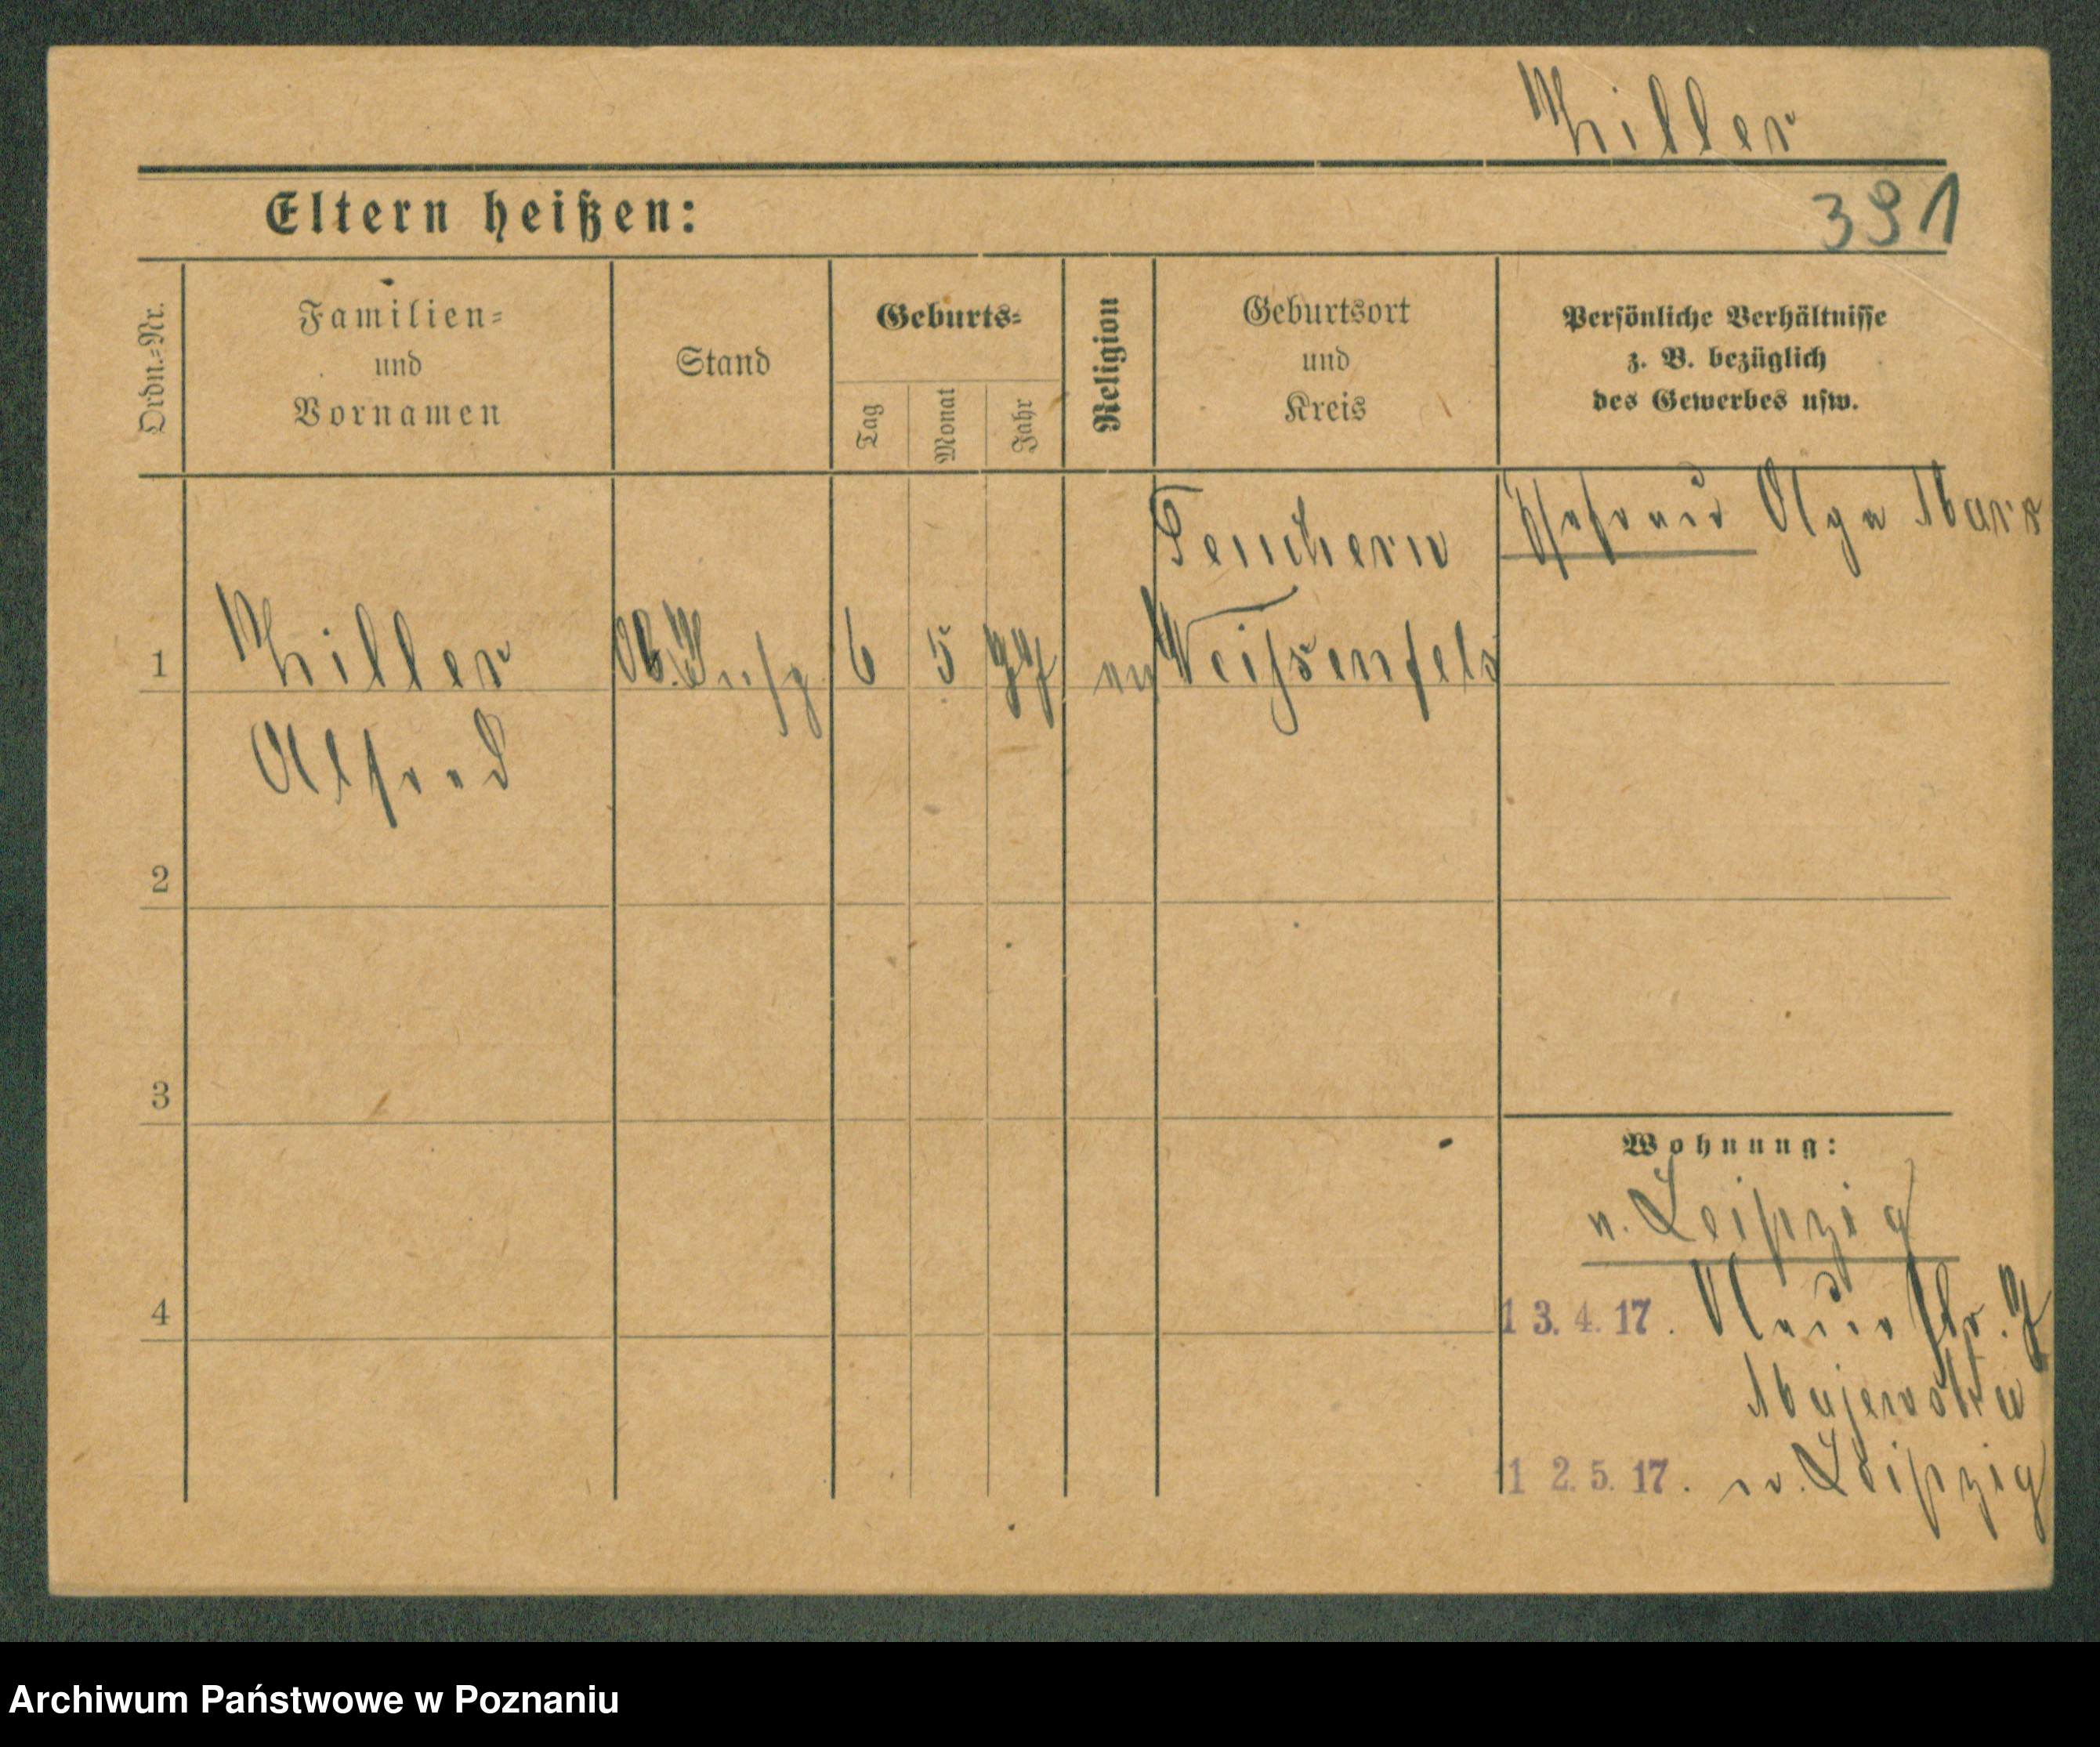 Hiller
391
Eltern heißen:
Ordn.=Nr.
Familien=
und
Vornamen
Stand
Geburts=
Tag
Monat
Jahr
Religion
Geburtsort
und
Kreis
Persönliche Verhältnisse
z. B. bezüglich
des Gewerbes usw.
Teuchern
Ehefrau Olga Marx
1 Hiller Ob. Insp. 6 5 77 ev Weißenfels
Alfred
2
3
Wohnung:
v. Leipzig
4
13.4.17. Neue Str. 7
Majewska
12.5.17. n. Leipzig
Archiwum Państwowe w Poznaniu